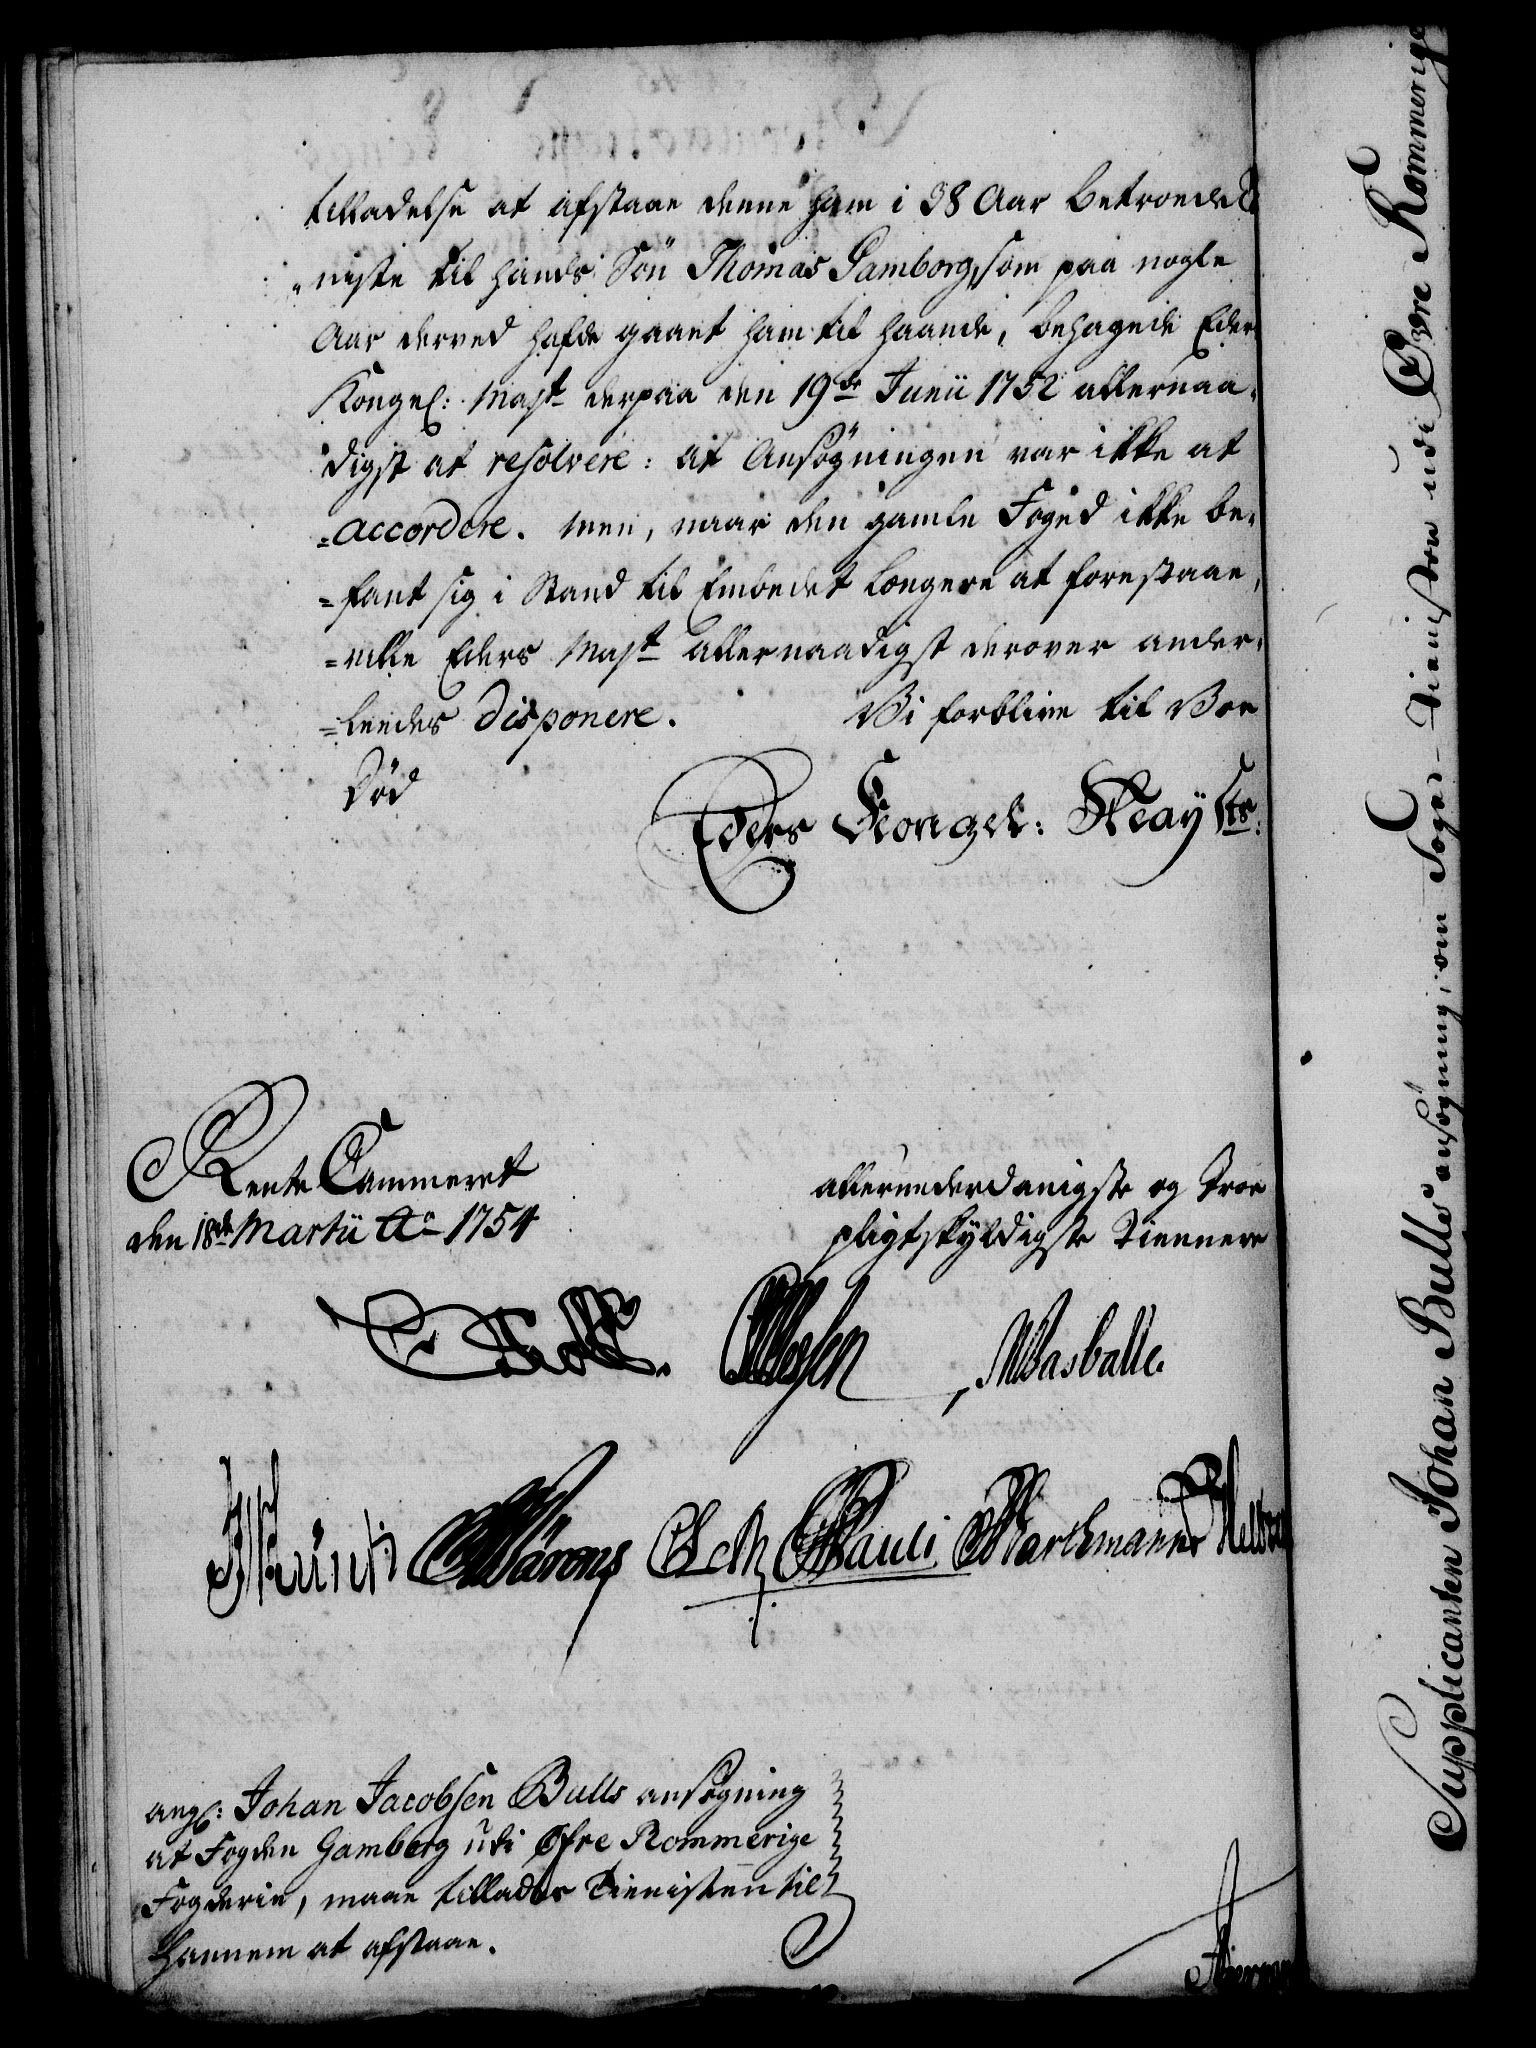 tilladelse at afstaae denne ham i 38 Aar betroede
niste til hands Søn Thomas Gamborg, som paa nogle
Aar derved hafde gaaet ham til haande, behagede Eders
Kongel: Mayt derpaa den 19de Junii 1752 allernaa-
digst at resolvere: at Ansøgningen var ikke at
=accordere. men, naar den gamle Foged ikke be-
=fant sig i Stand til Embedet længere at forestaae,
=ville Eders Mayt allernaadigst derover ander-
=leedes disponere. Vi forblive til Vor
Død
Eders Kongel: Mayts:
Rente Cammeret
den 18de Martii Ao 1754
allerunderdanigste og Troe
pligtskyldigste Tiennere
Wasballe.
Pauli Marthmann
angl: Johan Jacobsen Bulls ansøgning
at Fogden Gamberg udi Øfre Rommerige
Fogderie, maae tillades Tienisten til
Hannem at afstaae.
Supplicanten Johan Bulls ansøgning, om Foged-Tienisten udi Øvre Rommerige